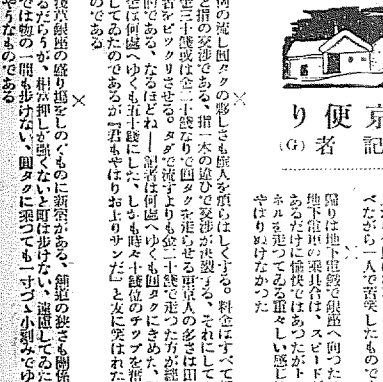 京便り
記者(G)
べながら一人で苦笑したもので
×
歸りは地下電鐵で銀座へ向つた
地下電車の乘具合は、スピード
あるだけに愉快ではあつたがト
ネルを走つてゐる重々しい感じ
やはりぬけなかつた
×
例の流し圓タクの夥しさも旅人を煩らはしくする。料金はすべて
と指の交渉である、指一本の違ひで交渉が決裂する、それにして
金三十錢或は金二十錢なりで圓タクを走らせる東京人の多さは田
者をビックリさせる。タダで流すよりも金二十錢で走つた方が經
的である、なるほどね――記者は何處へゆくも圓タクにきめた、
金は何處へゆくも五十錢にした、しかも時々十錢位のチップを増
してゐたのであるが『君もやはりお上りサンだ』と友に笑はれた
のである
×
淺草銀座の盛り場をしのぐものに新宿がある、舖道の狹さも關係
るだらうが、相當押しが強くないと町は歩けない、遠慮してゐた
では物の一間も歩けない、圓タクに乘つても一寸づゝ小刻みでゆ
やうなものである